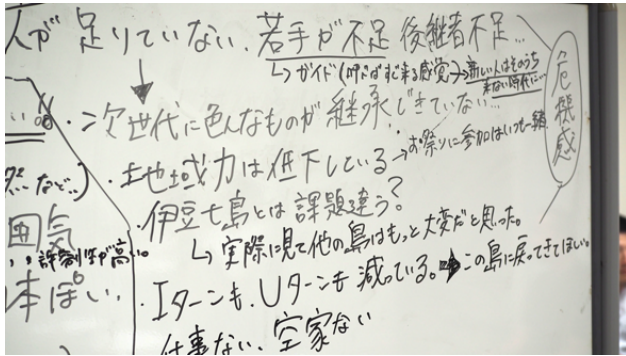 人が足りていない、若手が不足 後継者不足…
↳ガイド(呼べばすぐ来る感覚)→新しい人はそのうち
来ない時代に…
危機感
・次世代に色んなものが継承できていない…
・地域力は低下している→お祭りに参加はいつも一緒
・伊豆七島とは課題違う?
↳実際に見て他の島はもっと大変だと思った。
・Iターンも、Uターンも減っている。→この島に戻ってきてほしい。
仕事ない、空家ない
など…)
囲気
が高い。
本ぽい、